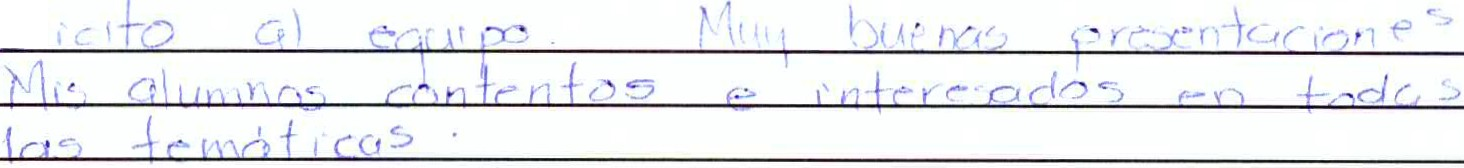 icito al equipo. Muy buenas presentaciones
Mis alumnos contentos e interesados en todas
las temáticas.